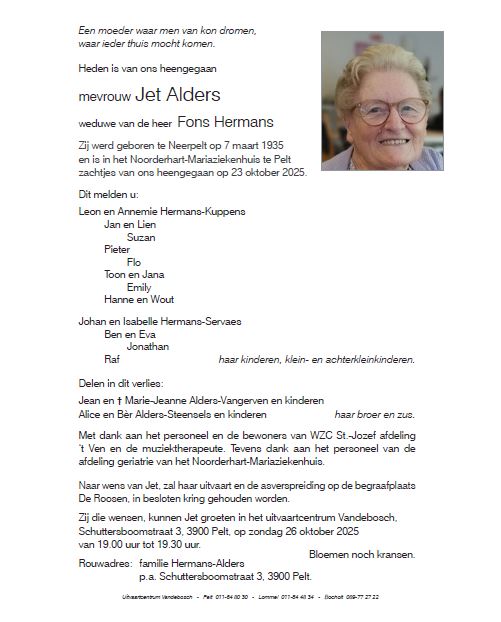 Een moeder waar men van kon dromen,
waar ieder thuis mocht komen.
Heden is van ons heengegaan
mevrouw Jet Alders
weduwe van de heer Fons Hermans
Zij werd geboren te Neerpelt op 7 maart 1935
en is in het Noorderhart-Mariaziekenhuis te Pelt
zachtjes van ons heengegaan op 23 oktober 2025.
Dit melden u:
Leon en Annemie Hermans-Kuppens
Jan en Lien
Suzan
Pieter
Flo
Toon en Jana
Emily
Hanne en Wout
Johan en Isabelle Hermans-Servaes
Ben en Eva
Jonathan
Raf haar kinderen, klein- en achterkleinkinderen.
Delen in dit verlies:
Jean en † Marie-Jeanne Alders-Vangerven en kinderen
Alice en Bèr Alders-Steensels en kinderen haar broer en zus.
Met dank aan het personeel en de bewoners van WZC St.-Jozef afdeling
't Ven en de muziektherapeute. Tevens dank aan het personeel van de
afdeling geriatrie van het Noorderhart-Mariaziekenhuis.
Naar wens van Jet, zal haar uitvaart en de asverspreiding op de begraafplaats
De Roosen, in besloten kring gehouden worden.
Zij die wensen, kunnen Jet groeten in het uitvaartcentrum Vandebosch,
Schuttersboomstraat 3, 3900 Pelt, op zondag 26 oktober 2025
van 19.00 uur tot 19.30 uur.
Bloemen noch kransen.
Rouwadres: familie Hermans-Alders
p.a. Schuttersboomstraat 3, 3900 Pelt.
Uitvaartcentrum Vandebosch - Pelt 011-64 80 30 - Lommel 011-54 40 34 - Bocholt 089-77 27 22